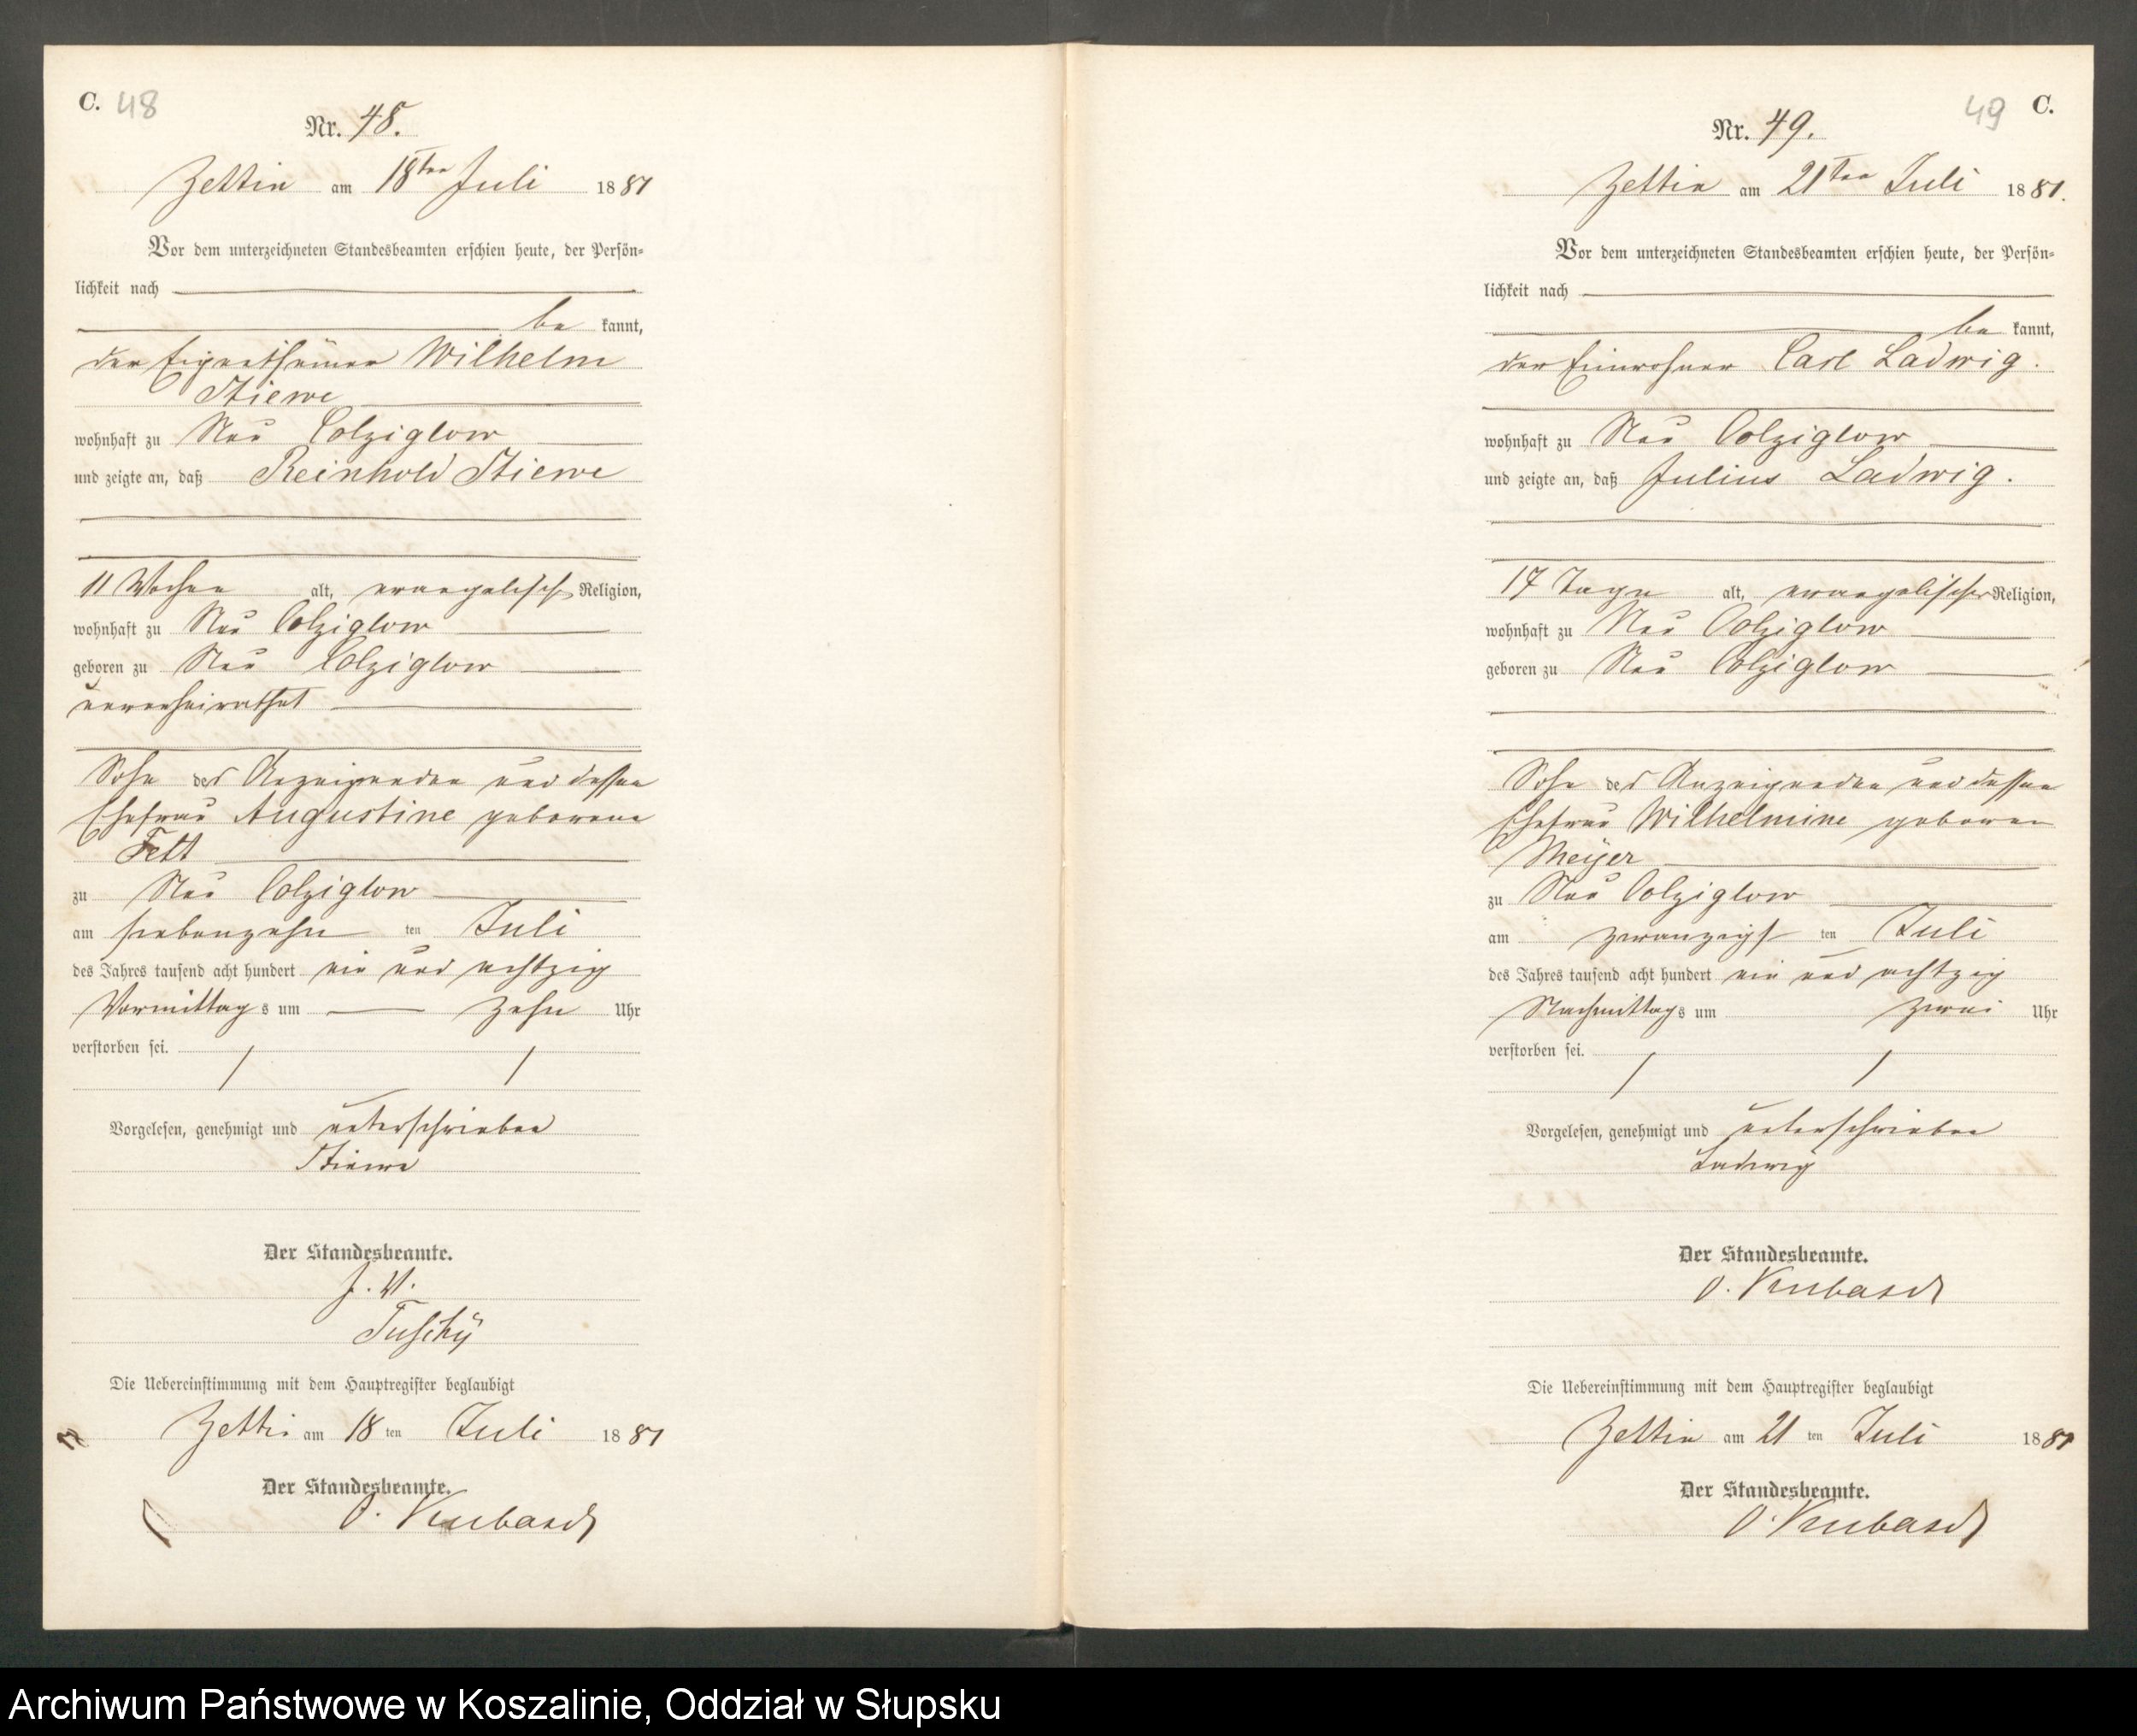 C. 48
Nr. 48.
Zettin am 18ten Juli 1881
Vor dem unterzeichneten Standesbeamten erschien heute, der Persön-
lichkeit nach
be kannt,
der Eigenthümer Wilhelm
Stiewe
wohnhaft zu Neu Colziglow
und zeigte an, daß Reinhold Stiewe
11 Wochen alt, evangelisch Religion,
wohnhaft zu Neu Colziglow
geboren zu Neu Colziglow
unverheirathet
Sohn des Anzeigenden und dessen
Ehefrau Augustine geborene
Fett
zu Neu Colziglow
am siebenzehn ten Juli
des Jahres tausend acht hundert ein und achtzig
Vormittag s um zehn Uhr
verstorben sei.
Vorgelesen, genehmigt und unterschrieben
Stiewe
Der Standesbeamte.
J. V.
Tuschÿ
Die Uebereinstimmung mit dem Hauptregister beglaubigt
Zettin am 18 ten Juli 1881
Der Standesbeamte.
O.
49 C.
Nr. 49.
Zettin am 21ten Juli 1881.
Vor dem unterzeichneten Standesbeamten erschien heute, der Persön-
lichkeit nach
be kannt,
der Einwohner Carl Ladwig.
wohnhaft zu Neu Colziglow
und zeigte an, daß Julius Ladwig.
17 Tage alt, evangelischer Religion,
wohnhaft zu Neu Colziglow
geboren zu Neu Colziglow
Sohn des Anzeigenden und dessen
Ehefrau Wilhelmine geboren
Meÿer
zu Neu Colziglow
am zwanzigs ten Juli
des Jahres tausend acht hundert ein und achtzig
Nachmittag s um zwei Uhr
verstorben sei.
Vorgelesen, genehmigt und unterschrieben
Ladwig
Der Standesbeamte.
O.
Die Uebereinstimmung mit dem Hauptregister beglaubigt
Zettin am 21 ten Juli 1881
Der Standesbeamte.
O.
Archiwum Państwowe w Koszalinie, Oddział w Słupsku